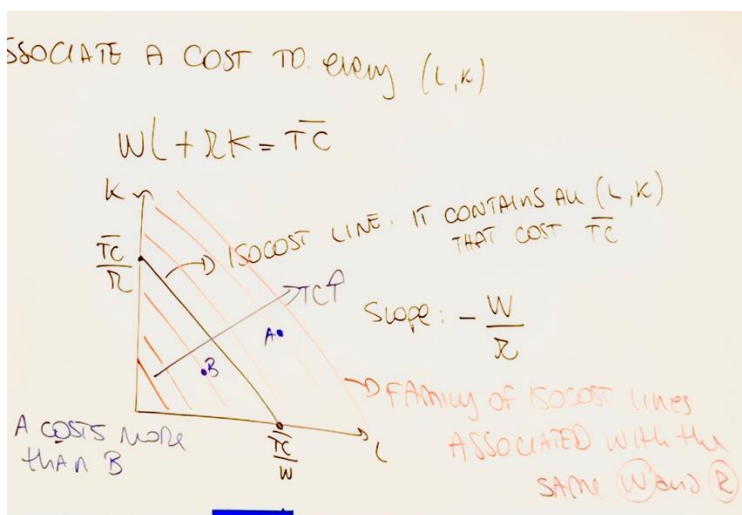 SSOCIATE A COST TO every (L,K)
WL + RK = T̅C̅
K
T̅C̅/R
ISOCOST LINE. IT CONTAINS ALL (L,K)
THAT COST T̅C̅
TC↑
A
Slope: - W/R
B
FAMILY OF ISOCOST LINES
ASSOCIATED WITH the
SAME W and R
A COSTS MORE
than B
T̅C̅/W
L